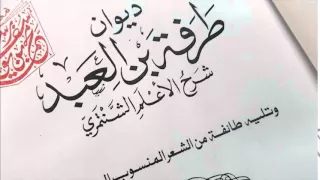 ديوان
طرفة بن العبد
شرح الأعلم الشنتمري
وتليه طائفة من الشعر المنسوب